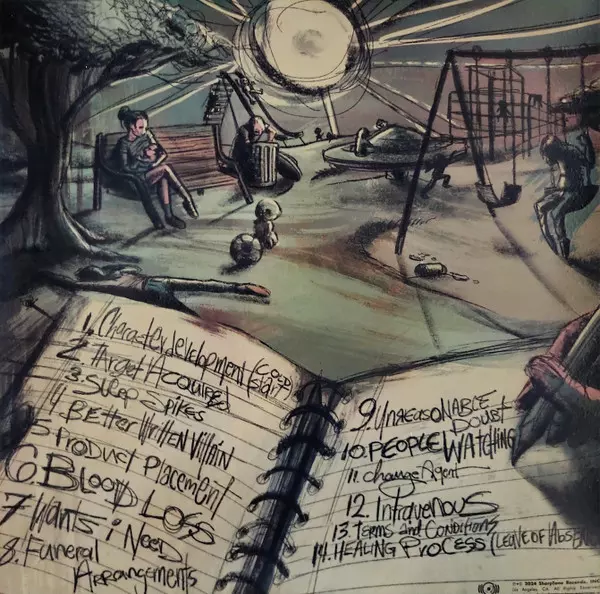 1. Character development (Cold Start)
2. Target Acquired
3. Sleep Spikes
4. BEtter Written Villain
5. Product Placement
6 BLOOD LOSS
7 Wants ; NEED
8. Funeral
Arrangements
9. UNREASONABLE
DOUBT
10. PEOPLE WATCHING
11. change Agent
12. Intravenous
13. Terms and Conditions
14. HEALING PROCESS (LEAVE OF ABSEN
2024 SharpTone Records, INC
Los Angeles, CA. All Rights Reserved